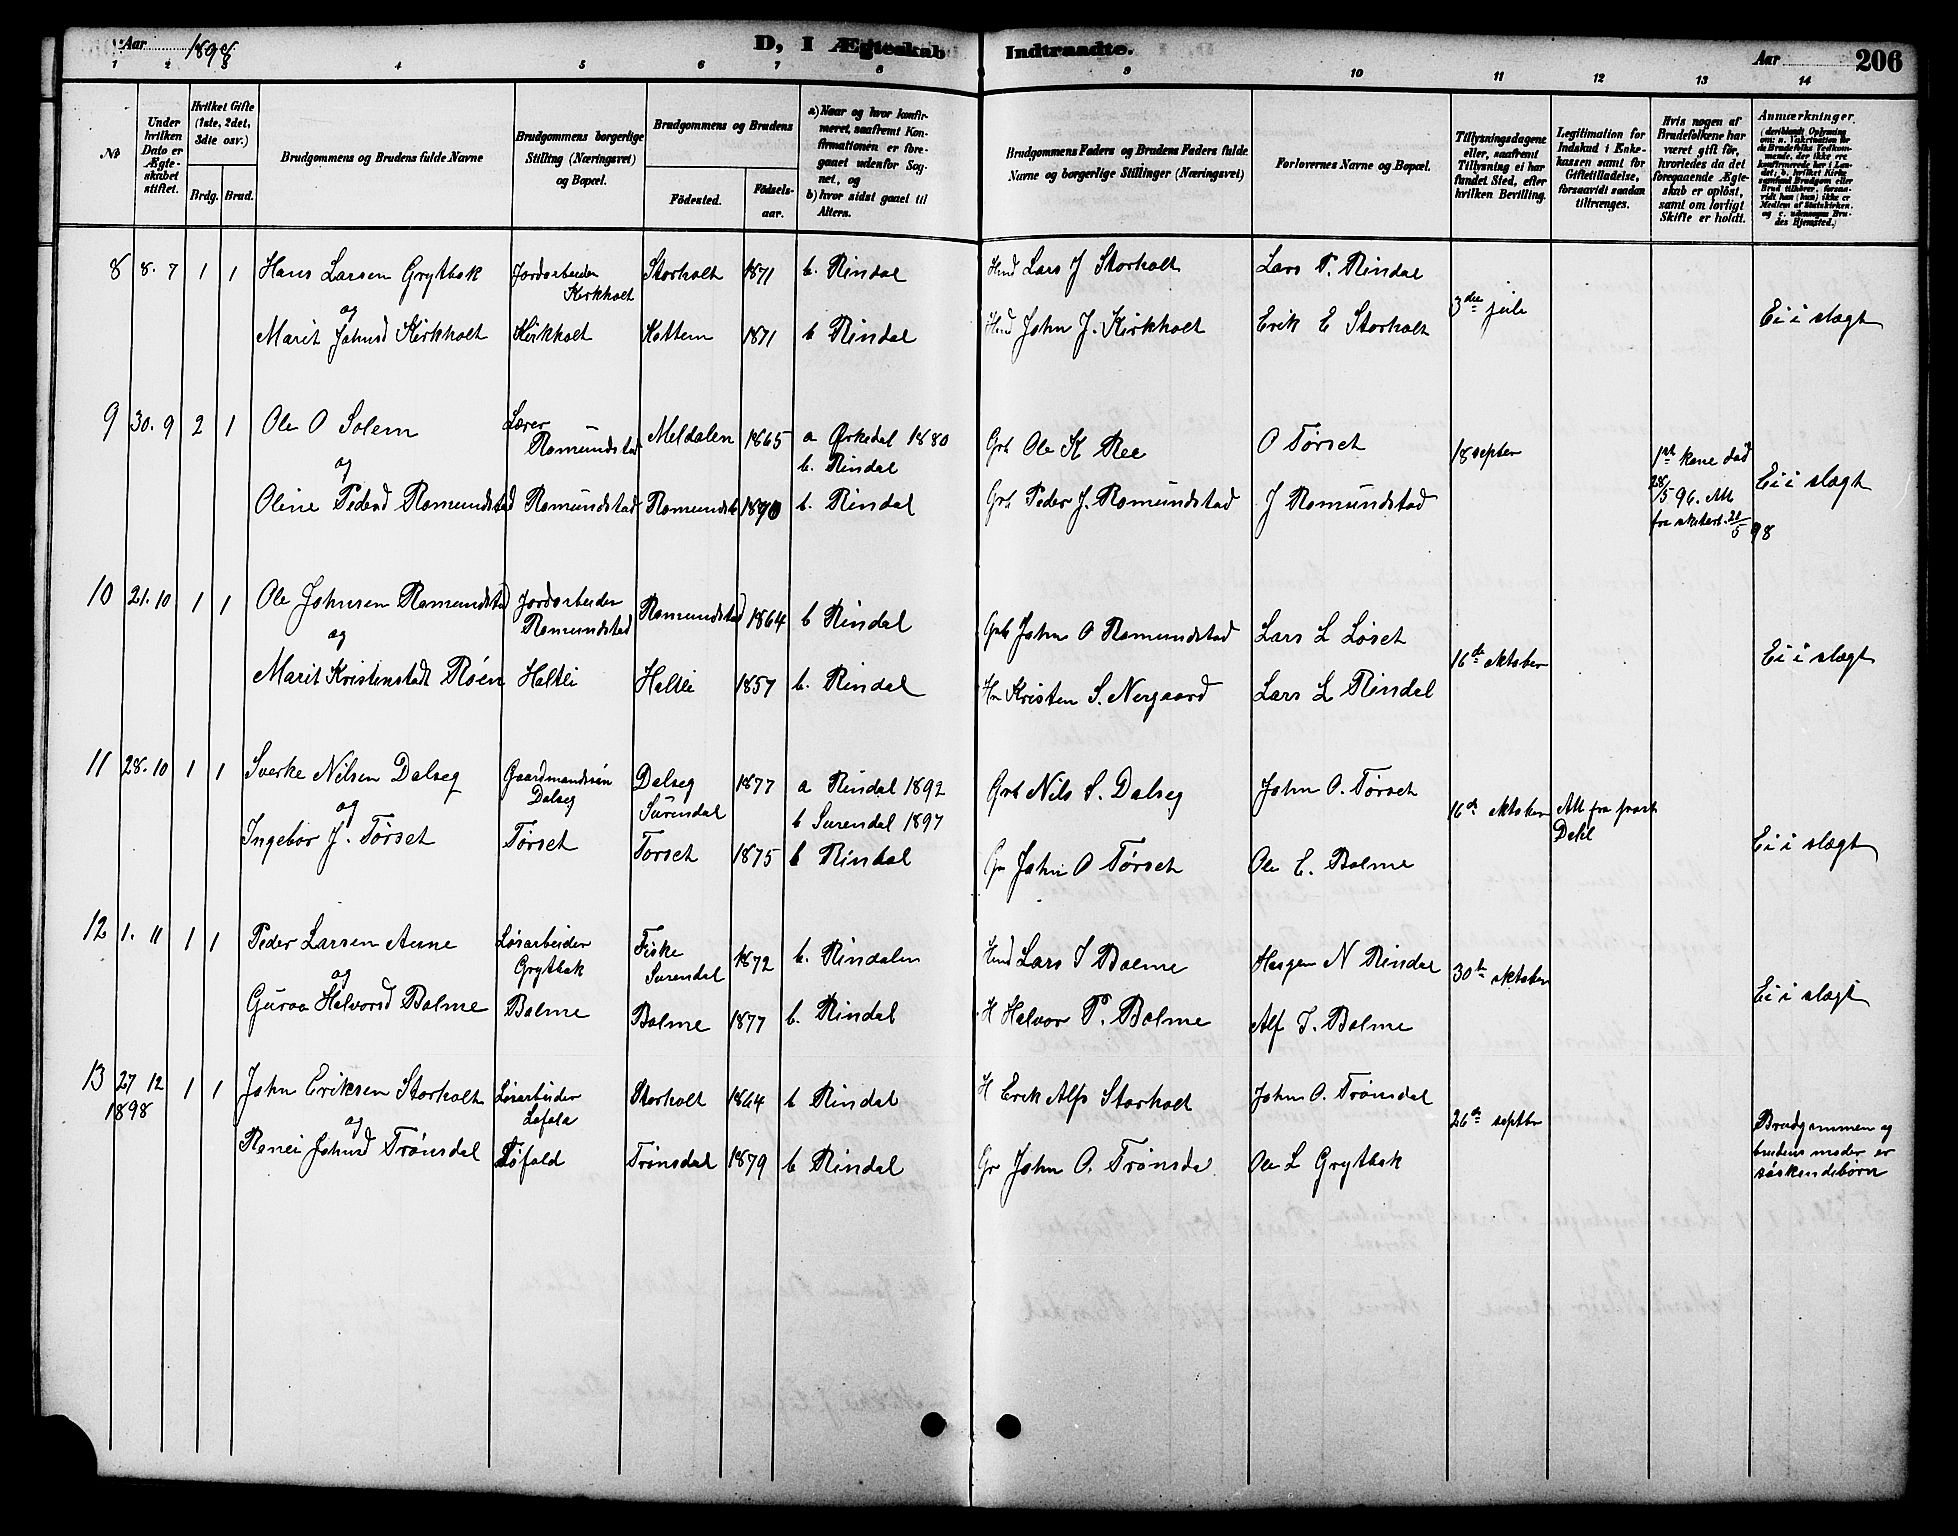 Aar 1898
D, I Ægteskab Indtraadte.
Aar
206
1 2 3 4 5 6 7 8 9 10 11 12 13 14
No
Under hvilken Dato er Ægteskabet stiftet.
Hvilket Gifte (1ste, 2det, 3die osv.)
Brdg. Brud.
Brudgommens og Brudens fulde Navne
Brudgommens borgerlige Stilling (Næringsvei) og Bopæl.
Brudgommens og Brudens
Födested.
Födsels-aar.
a) Naar og hvor konfirmeret, saafremt Konfirmationen er foregaaet udenfor Sognet, og
b) hvor sidst gaaet til Alters.
Brudgommens Faders og Brudens Faders fulde Navne og borgerlige Stillinger (Næringsvei)
Forlovernes Navne og Bopæl.
Tillysningsdagene eller, saafremt Tillysning ei har fundet Sted, efter hvilken Bevilling.
Legitimation for Indskud i Enkekassen samt for Giftetilladelse, forsaavidt saadan tiltrænges.
Hvis nogen af Brudefolkene har været gift för, hvorledes da det foregaaende Ægteskab er oplöst, samt om lovligt Skifte er holdt.
Anmærkninger.
8 8. 7 1 1 Hans Larsen Grytbak Jordarbeider Kirkholt Storholt 1871 b. Rindal Hmd Lars J Storholt Lars P. Rindal 3die juli
og
Marit Johnsd Kirkholt Kirkholt Kottem 1871 b Rindal Hmd John J. Kirkholt Erik E Storholt Ei i slægt
9 30. 9 2 1 Ole O Solem Lærer Romundstad Meldalen 1865 a Ørkedal 1880 b. Rindal Grb Ole K Ree O Tørset 18 septer 1ste kone død 28/5 96. Att fra skifter. 21/5 98
og
Oline Pedersd Romundstad Romundstad Romundst 1870 b. Rindal Grb Peder J. Romundstad J Romundstad Ei i slægt
10 21. 10 1 1 Ole Johnsen Romundstad Jordarbeider Romundstad Romundstad 1864 b Rindal Grb John O Romundstad Lars L Løset 16de oktober
og
Marit Kristensdatt Røen Haltli Haltli 1857 b. Rindal Hm Kristen S. Nergaard Lars L Rindal Ei i slægt
11 28. 10 1 1 Sverke Nilsen Dalseg Gaardmandssøn Dalseg Dalseg Surendal 1877 a Rindal 1892 b Surendal 1897 Grb Nils S. Dalseg John O. Tørset 16de oktober Att fra prost Dahl
og
Ingebor J. Tørset Tørset Torset 1875 b Rindal Gr John O Tørset Ole E. Bolme Ei i slægt
12 1. 11 1 1 Peder Larsen Aune Løsarbeider Grytbak Fiske Surendal 1872 b. Rindalen Hmd Lars S Bolme Haagen N Rindal 30te oktober
og
Guroa Halvorsd Bolme Bolme Bolme 1877 b. Rindal H Halvor P. Bolme Alf I. Bolme Ei i slægt
13 27 12 1898 1 1 John Eriksen Storholt Løsarbeider Lofald Storholt 1864 b Rindal H Erik Alfs Storholt John O. Trønsdal 26de septbr
og
Ranei Johnsd Trønsdal Løfald Trønsdal 1879 b Rindal Gr John O. Trønsdal Ole L Grytbak Brudgommen og brudens moder er søskendebørn